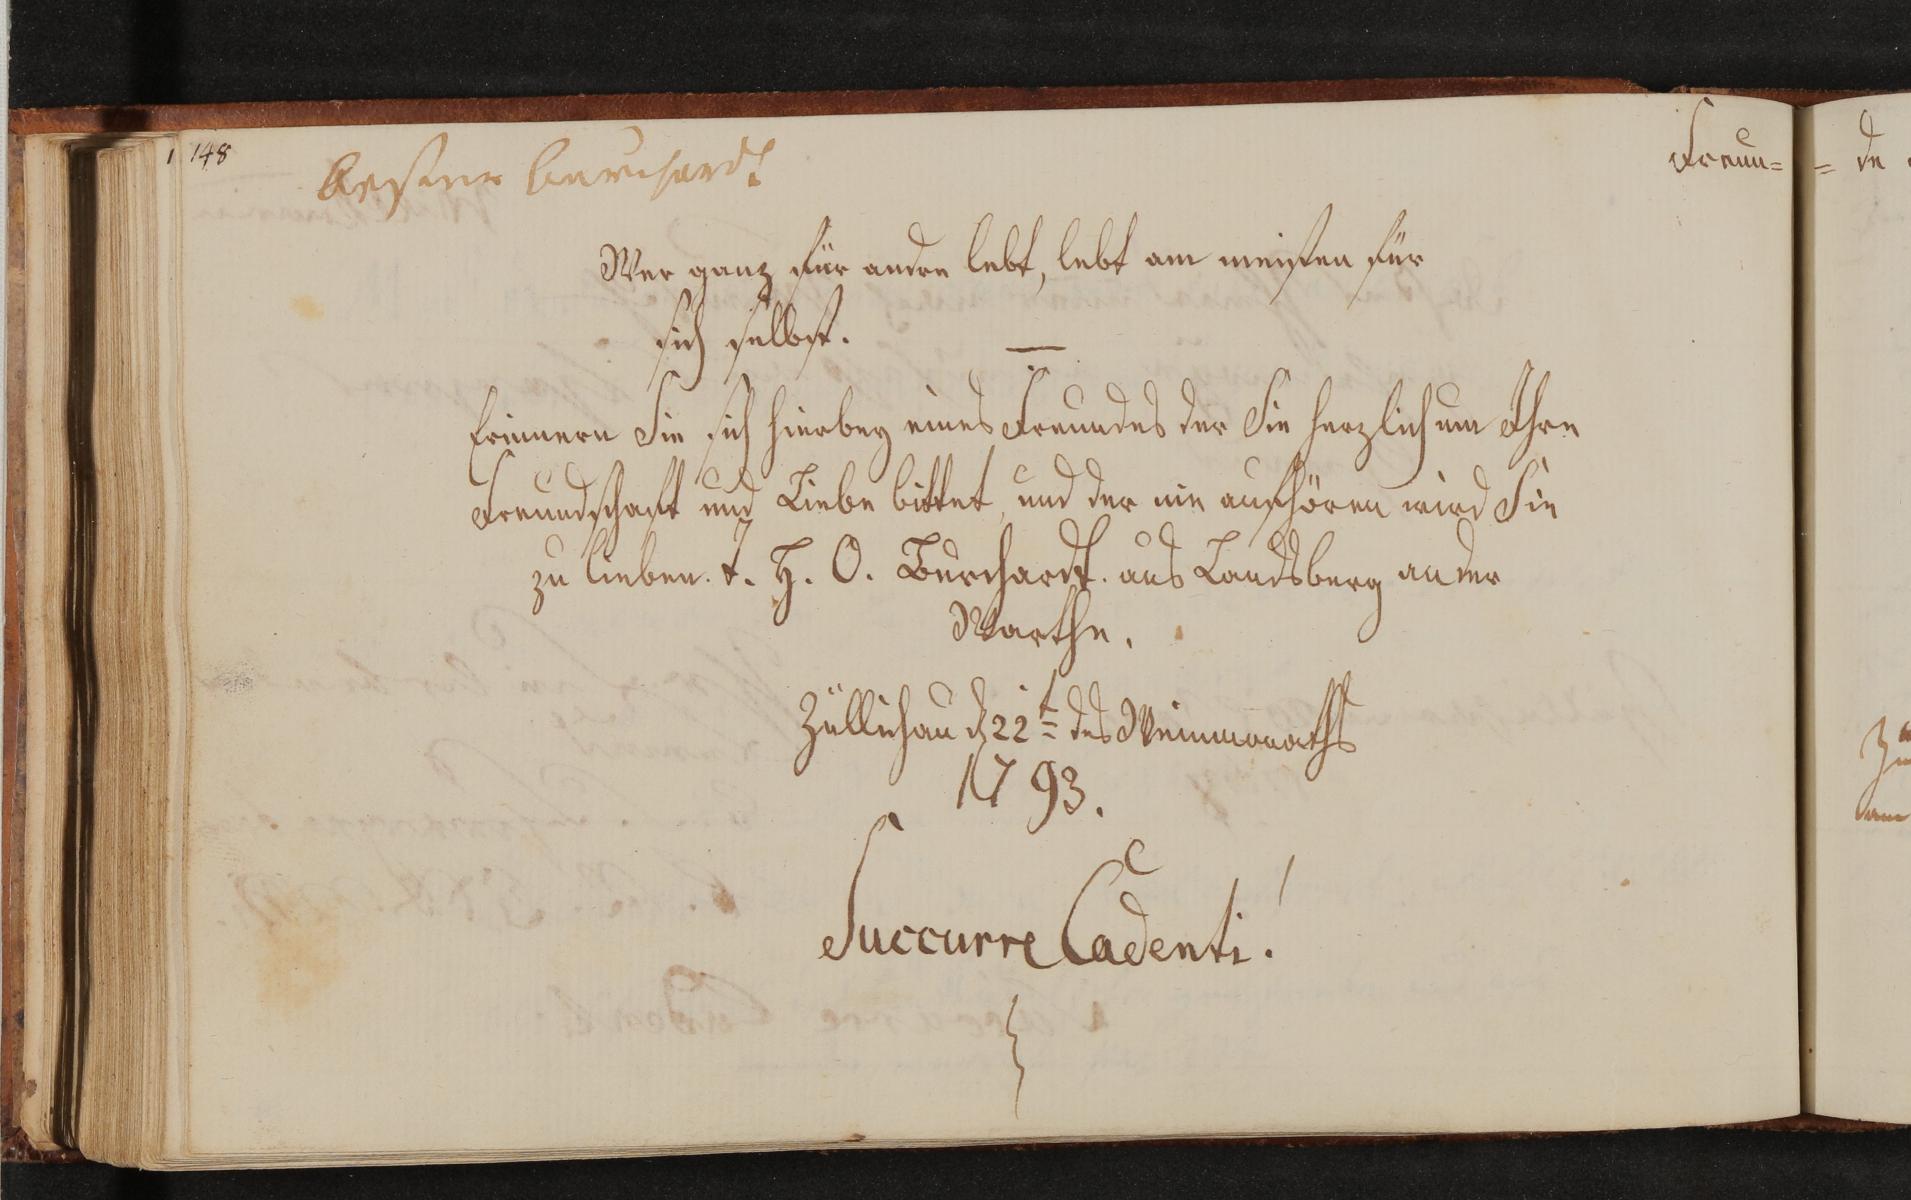 148
Bester Burchardt
Freun=
= de
Wer ganz für andre lebt, lebt am meisten für
sich selbst.
Erinnern Sie sich hierbey eines Freundes der Sie herzlich um Ihre
Freundschaft und Liebe bittet, und der nie aufhören wird Sie
zu lieben. J. H. O. Burchardt. aus Landsberg an der
Warthe.
Züllichau d 22t des Weinmonaths
1793.
Succurre Cadenti!